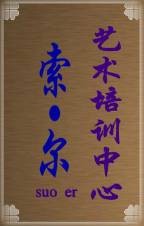 艺术培训中心
索·尔
suo er